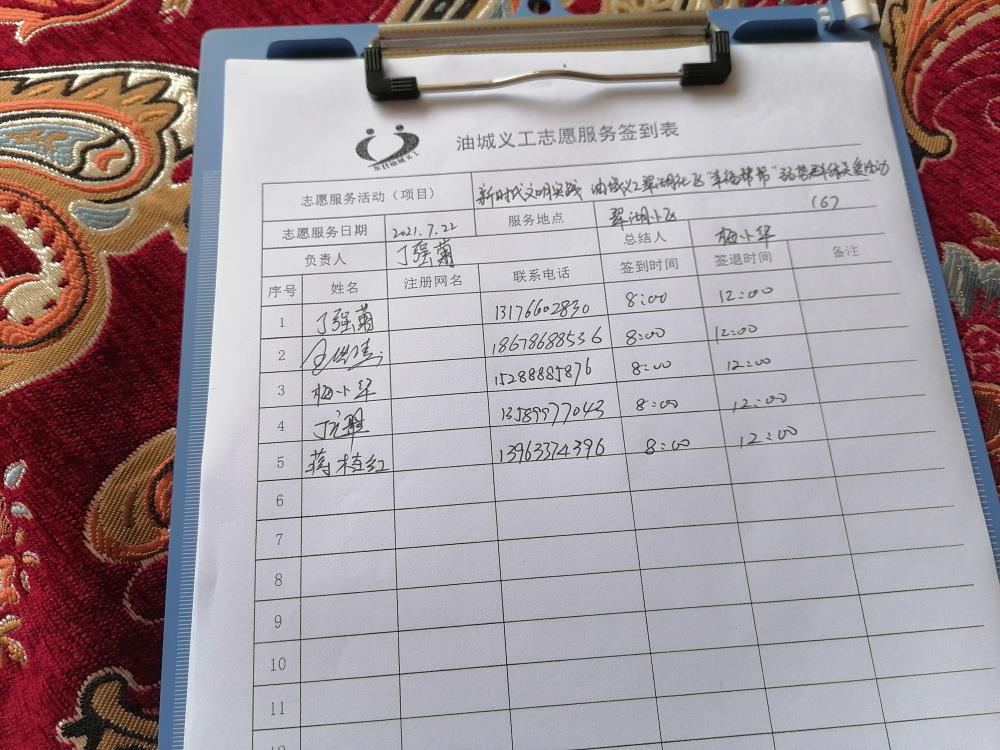 东营油城义工
油城义工志愿服务签到表
志愿服务活动（项目） 新时代文明实践 油城义工翠湖社区"幸福帮帮"弱势群体关爱活动
(6)
志愿服务日期 2021.7.22 服务地点 翠湖小区
负责人 丁强菊 总结人 梅小华
序号 姓名 注册网名 联系电话 签到时间 签退时间 备注
1 丁强菊 13176602830 8:00 12:00
2 18678688536 8:00 12:00
3 梅小华 15288885876 8:00 12:00
4 13589977043 8:00 12:00
5 蒋植红 13963374396 8:00 12:00
6
7
8
9
10
11